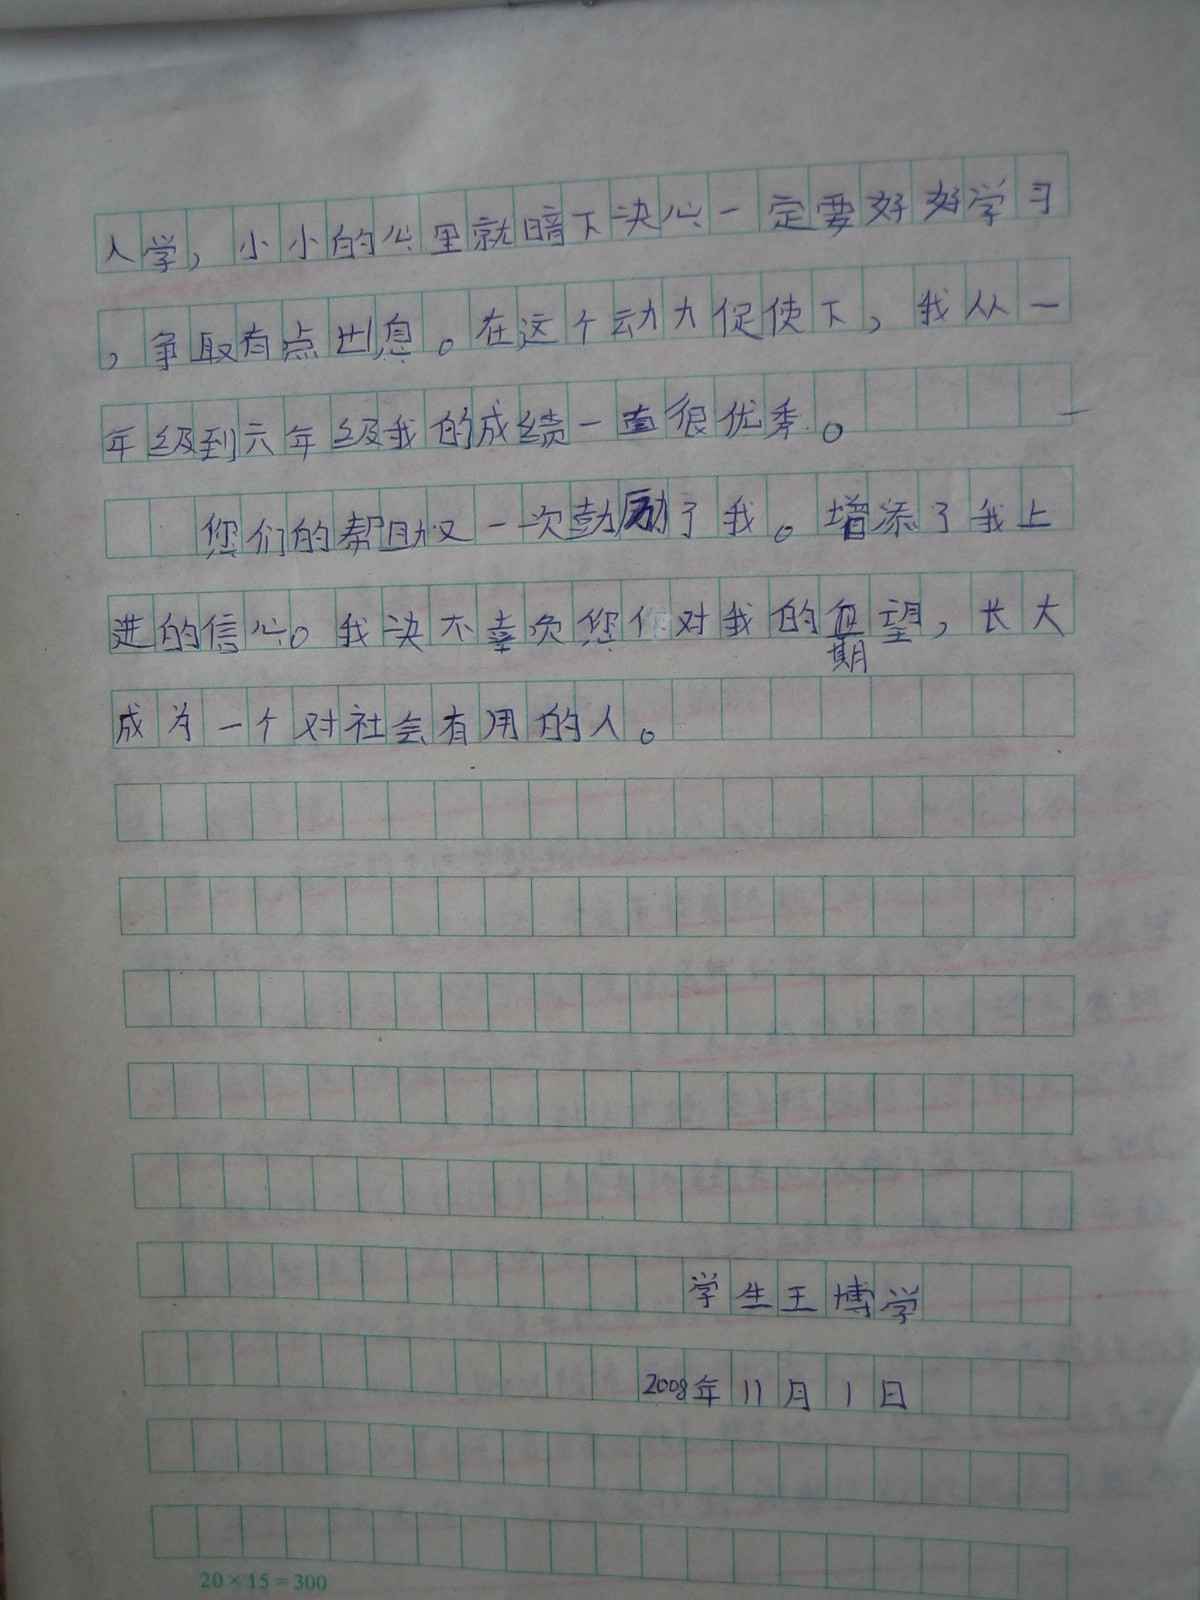 入学，小小的心里就暗下决心一定要好好学习
，争取有点出息。在这个动力促使下，我从一
年级到六年级我的成绩一直很优秀。
您们的帮助又一次鼓励了我。增添了我上
进的信心。我决不辜负您们对我的期望，长大
成为一个对社会有用的人。
学生王博学
2008年11月1日
20×15=300